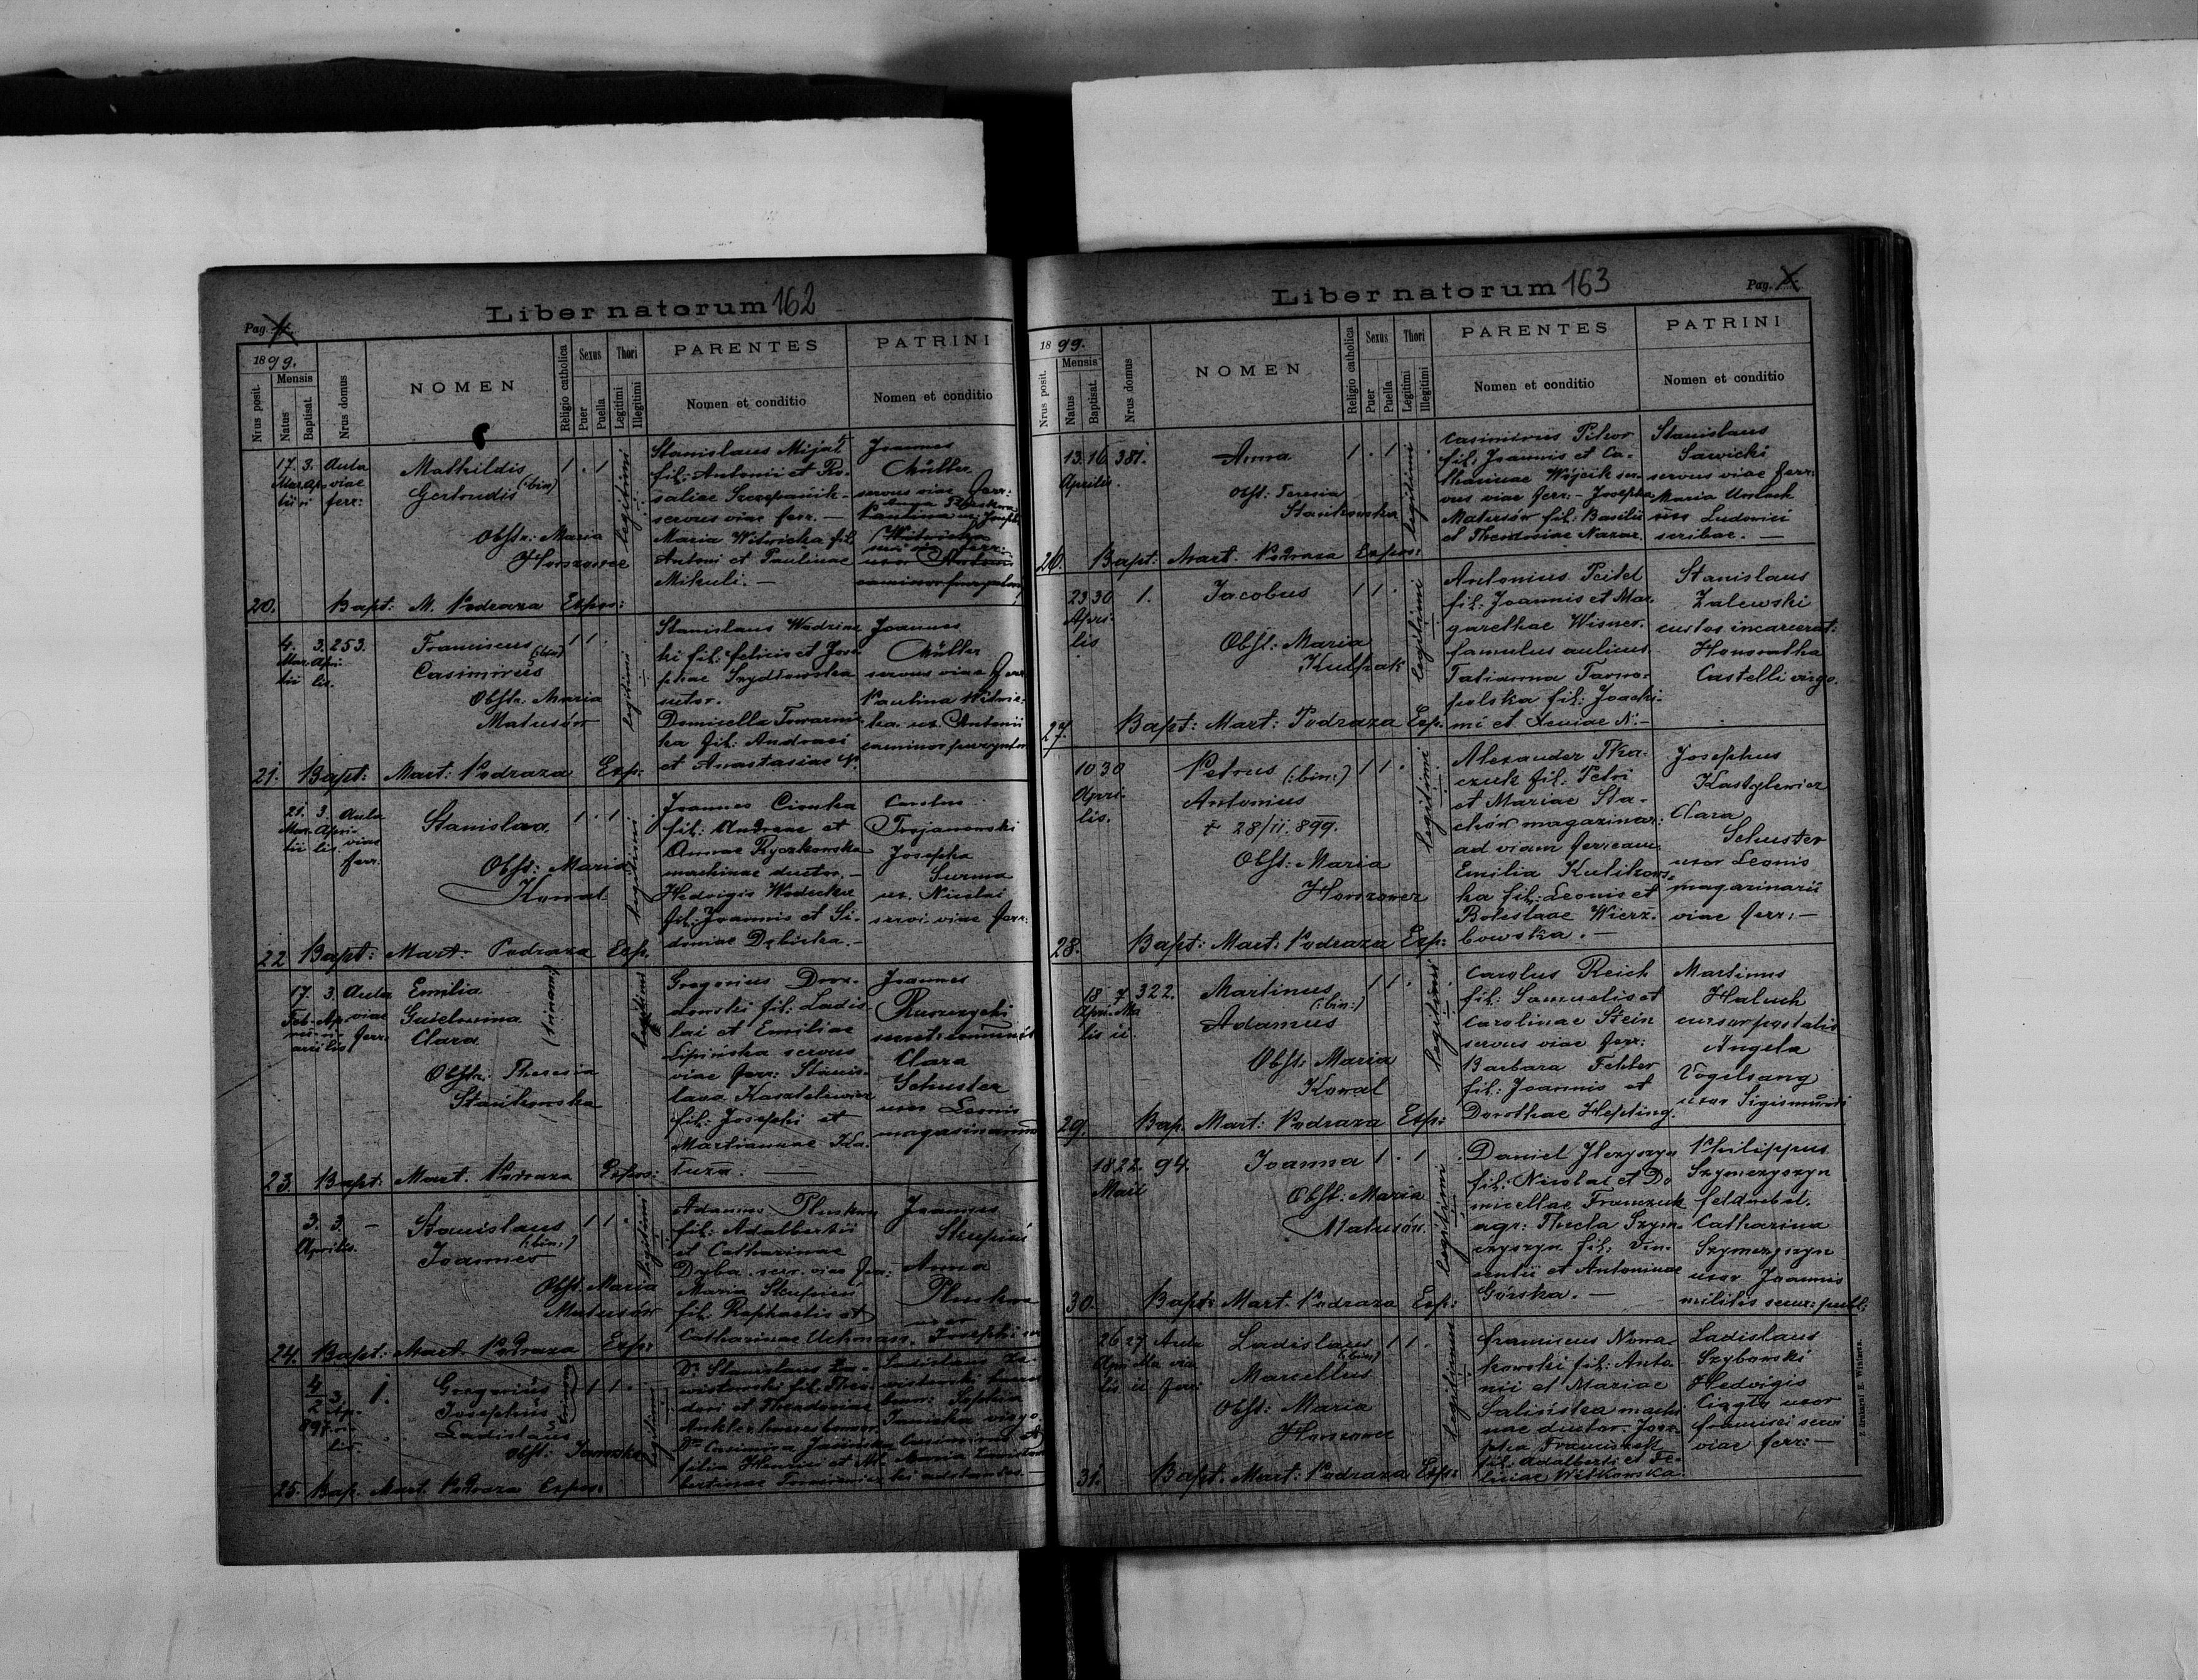 Liber natorum 162
Pag.
1899.
Nrus posit.
Mensis
Natus
Baptisat.
Nrus domus
NOMEN
Religio catholica
Sexus
Puer
Puella
Thori
Legitimi
Illegitimi
PARENTES
Nomen et conditio
PATRINI
Nomen et conditio
17. 3. Aula
Mar. Ap. viae
tii ri ferr:
Mathildis
(:bin)
Gertrudis
Obstr: Maria
Honzower
1 . 1
legitimi
Stanislaus Mijał
fil: Antonii et Ro-
saliae Szczepańcik -
servus viae ferr. —
Maria Witwicka fil
Antoni et Paulinae
Mikuli. —
Joannes
Müller
servus viae ferr:
20. Bapt: M. Podraza Expos:
4. 3. 253.
Mar Apri-
tii lis.
Franciscus
(:bin)
Casimirus
Obstr. Maria
Matusów
1 1 .
legitimi
Stanislaus Wodzic
ki fil: Felicis et Jose
phae Szydłowska
sutor.
Domicella Towarnic
ka fil: Andraei
et Anastasiae N.
Joannes
Müller
servus viae ferr
Paulina Witwic-
ka ux. Antonii
21. Bapt: Mart: Podraza Exp:
21. 3. Aula
Mar- Apri- viae
tii lis. ferr:
Stanislava
Obst: Maria
Kowal
1 . 1
legitimi
Joannes Cionka
fil: Andreae et
Annae Ryczkowska
machinae ductor. —
Hedvigis Wodecka
fil: Joannis et Si-
doniae Dębicka. —
Carolus
Trojanowski
Josepha
Surma
ux. Nicolai
servi viae ferr:
22 Bapt: Mart. Podraza Exp.
17. 3. Aula
Feb- Ap- viae
ru- ri- ferr:
arii lis
Emilia
Clara
(trinam)
Obstr: Theresia
Stankowska
legitimi
Gregorius Droz-
dowski fil: Ladis
lai et Emiliae
Lipińska servus
viae ferr: Stanis-
lava Kasztelewicz
fil: Josephi et
Martiannae Ka-
łuża. —
Joannes
Ruszczycki
Clara
Schuster
uxor Leonis
23. Bapt: Mart. Podraza Expos:
3. 3. —
Aprilis.
Stanislaus
(:bin:)
Joannes
Obst Maria
Matusów
1 1 .
legitimi
Adamus Pluskwa
fil: Adalbertii
et Catharinae
Dyba. serv. viae fer:
Maria Stempień
fil: Raphaelis et
Catharinae Uchmass.
Joannes
Stempień
Anna
Pluskwa
uxor
Josephi
24. Bapt: Mart. Podraza Exp:
4 3 1.
2 Ap-
897. ri-
lis.
Gregorius
Josephus
Ladislaus
Obst: Janowska
1 1 .
legitimi
Dr. Stanislaus
fil: Theo-
dori et Theodoriae
Dna Casimira Jasińska
filia Henrici et Al-
bertinae
25. Bap. Mart. Podraza Expos:
Liber natorum 163
Pag.
1899.
Nrus posit.
Mensis
Natus
Baptisat.
Nrus domus
NOMEN
Religio catholica
Sexus
Puer
Puella
Thori
Legitimi
Illegitimi
PARENTES
Nomen et conditio
PATRINI
Nomen et conditio
13. 16. 381.
Aprilis.
Anna
Obst: Teresia
Stankowska
1 . 1
legitimi
Casimirus Pikor
fil: Joannis et Ca-
tharinae Wójcik ser-
vus viae ferr: - Josepha
Matusów fil: Basilii
et Theodosiae Nazar.
Stanislaus
Sawicki
servus viae ferr:
Maria Urnlach
uxor Ludovici
scribae. —
26. Bapt: Mart. Podraza Expos:
23 30 1.
Apri-
lis
Jacobus
Obst: Maria
Kulpak
1 1 .
legitimi
Antonius Peitel
fil: Joannis et Mar-
garethae Wisner.
famulus aulicus
Tatianna Tarno-
polska fil: Joachi-
mi et Xeniae N. —
Stanislaus
Zalewski
custos incarcerat:
Honoratha
Castelli virgo.
27. Bapt: Mart: Podraza Exp.
10 30
Apri-
lis.
Petrus (:bin:)
Antonius
+ 28/11. 899.
Obst: Maria
Honzower
1 1 .
legitimi
Alexander Tka-
czuk fil: Petri
et Mariae Sta-
chów magazinar:
ad viam ferream
Emilia Kulikows-
ka fil: Leonis et
Boleslaae Wierz-
bowska. —
Josephus
Kasztylewicz
Clara
Schuster
uxor Leonis
magazinarii
viae ferr: —
28. Bapt: Mart: Podraza Exp:
18 7 322.
Apri- Ma
lis ii
Martinus
(:bin:)
Adamus
Obst: Maria
Kowal
1 1 .
legitimi
Carolus Reich
fil: Samuelis et
Carolinae Stein
servus viae ferr:
Barbara Felber
fil: Joannis et
Dorothae Hepting.
Martinus
Haluch
cursor postalis
Angela
Vogelsang
uxor Sigismundi
29. Bap. Mart: Podraza Exp:
18 22. 94.
Maii
Joanna
Obst: Maria
Matusów.
1 . 1
legitimi
Daniel Ilczyszyn
fil: Nicolai et Do
micellae Franczuk
agr: Thecla Szym-
czyszyn fil: Vin-
centii et Antoninae
Górska. —
Philippus
Szymczyszyn
feldwebel.
Catharina
Szymczyszyn
uxor Joannis
militis secur: publ:
30. Bapt: Mart. Podraza Exp:
26 27 Aula
Apri Ma viae
lis ii ferr
Ladislaus
(:bin)
Marcellus
Obst: Maria
Honzower
1 1 .
legitimus
Franciscus Nowa-
kowski fil: Anto-
nii et Mariae
Salińska machi
nae ductor. Jose-
pha Franciszek
fil: Adalberti et Fe-
liciae Witkowska.
Ladislaus
Szybowski
Hedvigis
Ciągło uxor
Francisci servi
viae ferr: —
31. Bapt. Mart: Podraza Exp:
Z drukarni E. Winiarza.